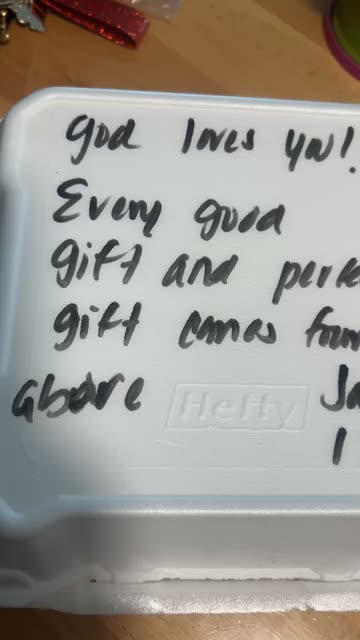 God loves you!
Every good
gift and perfe
gift comes from
above Hefty Ja
1